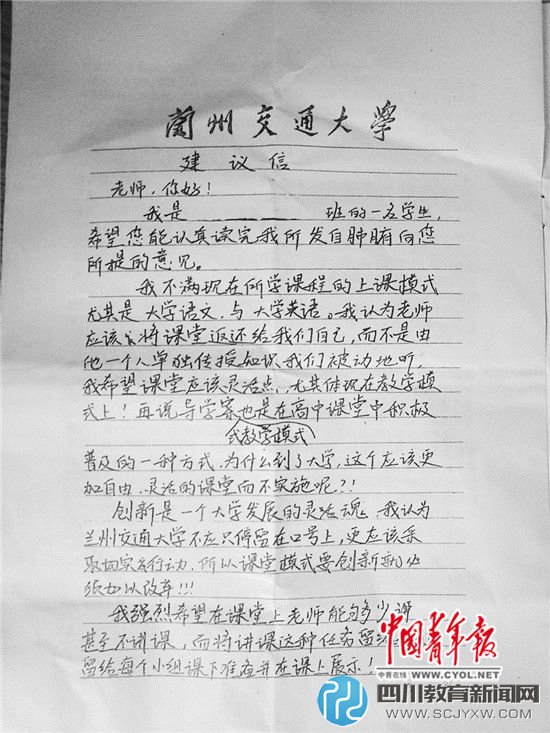 蘭州交通大學
建议信
老师，你好！
我是 班的一名学生，
希望您能认真读完我所发自肺腑向您
所提的意见。
我不满现在所学课程的上课模式
尤其是大学语文，与大学英语。我认为老师
应该将课堂返还给我们自己，而不是由
他一个人单独传授知识我们被动地听
我希望课堂应该灵活点，尤其体现在教学模
式上！再说导学案也是在高中课堂中积极
式教学模式
普及的一种方式，为什么到了大学，这个应该更
加自由、灵活的课堂而不实施呢？！
创新是一个大学发展的灵活魂，我认为
兰州交通大学不应只停留在口号上，更应该采
取切实行动，所以课堂模式要创新就必
须加以改革！！！
我强烈希望在课堂上老师能够多少讲
甚至不讲课，而将讲课这种任务留给
留给每个小组课下准备并在课上展示！
中国青年报
中青在线 WWW.CYOL.NET
四川教育新闻网
WWW.SCJYXW.COM